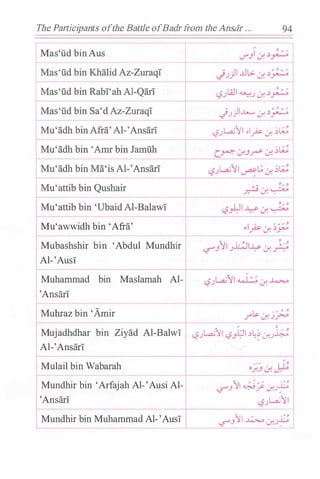 The Participants of the Battle of Badr from the Ansār ... 94
Mas‘ūd bin Aus مَسْعُود بن أوس
Mas‘ūd bin Khālid Az-Zuraqī مَسْعُود بن خالد الزرقي
Mas‘ūd bin Rabī‘ah Al-Qārī مَسْعُود بن ربيعة القاري
Mas‘ūd bin Sa‘d Az-Zuraqī مَسْعُود بن سعد الزرقي
Mu‘ādh bin Afrā’ Al-’Ansārī مُعَاذ بن عفراء الأنصاري
Mu‘ādh bin ‘Amr bin Jamūh مُعَاذ بن عمرو بن جموح
Mu‘ādh bin Mā‘is Al-’Ansārī مُعَاذ بن ماعص الأنصاري
Mu‘attib bin Qushair مُعَتِّب بن قشير
Mu‘attib bin ‘Ubaid Al-Balawī مُعَتِّب بن عبيد البلوي
Mu‘awwidh bin ‘Afrā’ مُعَوِّذ بن عفراء
Mubashshir bin ‘Abdul Mundhir مُبَشِّر بن عبدالمُنْذِر الأوسي
Al-’Ausī
Muhammad bin Maslamah Al- محمد بن مَسْلَمة الأنصاري
’Ansārī
Muhraz bin ‘Āmir مُحْرَز بن عامر
Mujadhdhar bin Ziyād Al-Balwī مُجَذَّر بن زِيَاد البَلَوي الأنصاري
Al-’Ansārī
Mulail bin Wabarah مُلَيْل بن وَبَرَة
Mundhir bin ‘Arfajah Al-’Ausi Al- مُنْذِر بن عَرْفَجة الأوسي
’Ansārī الأنصاري
Mundhir bin Muhammad Al-’Ausī مُنْذِر بن محمد الأوسي